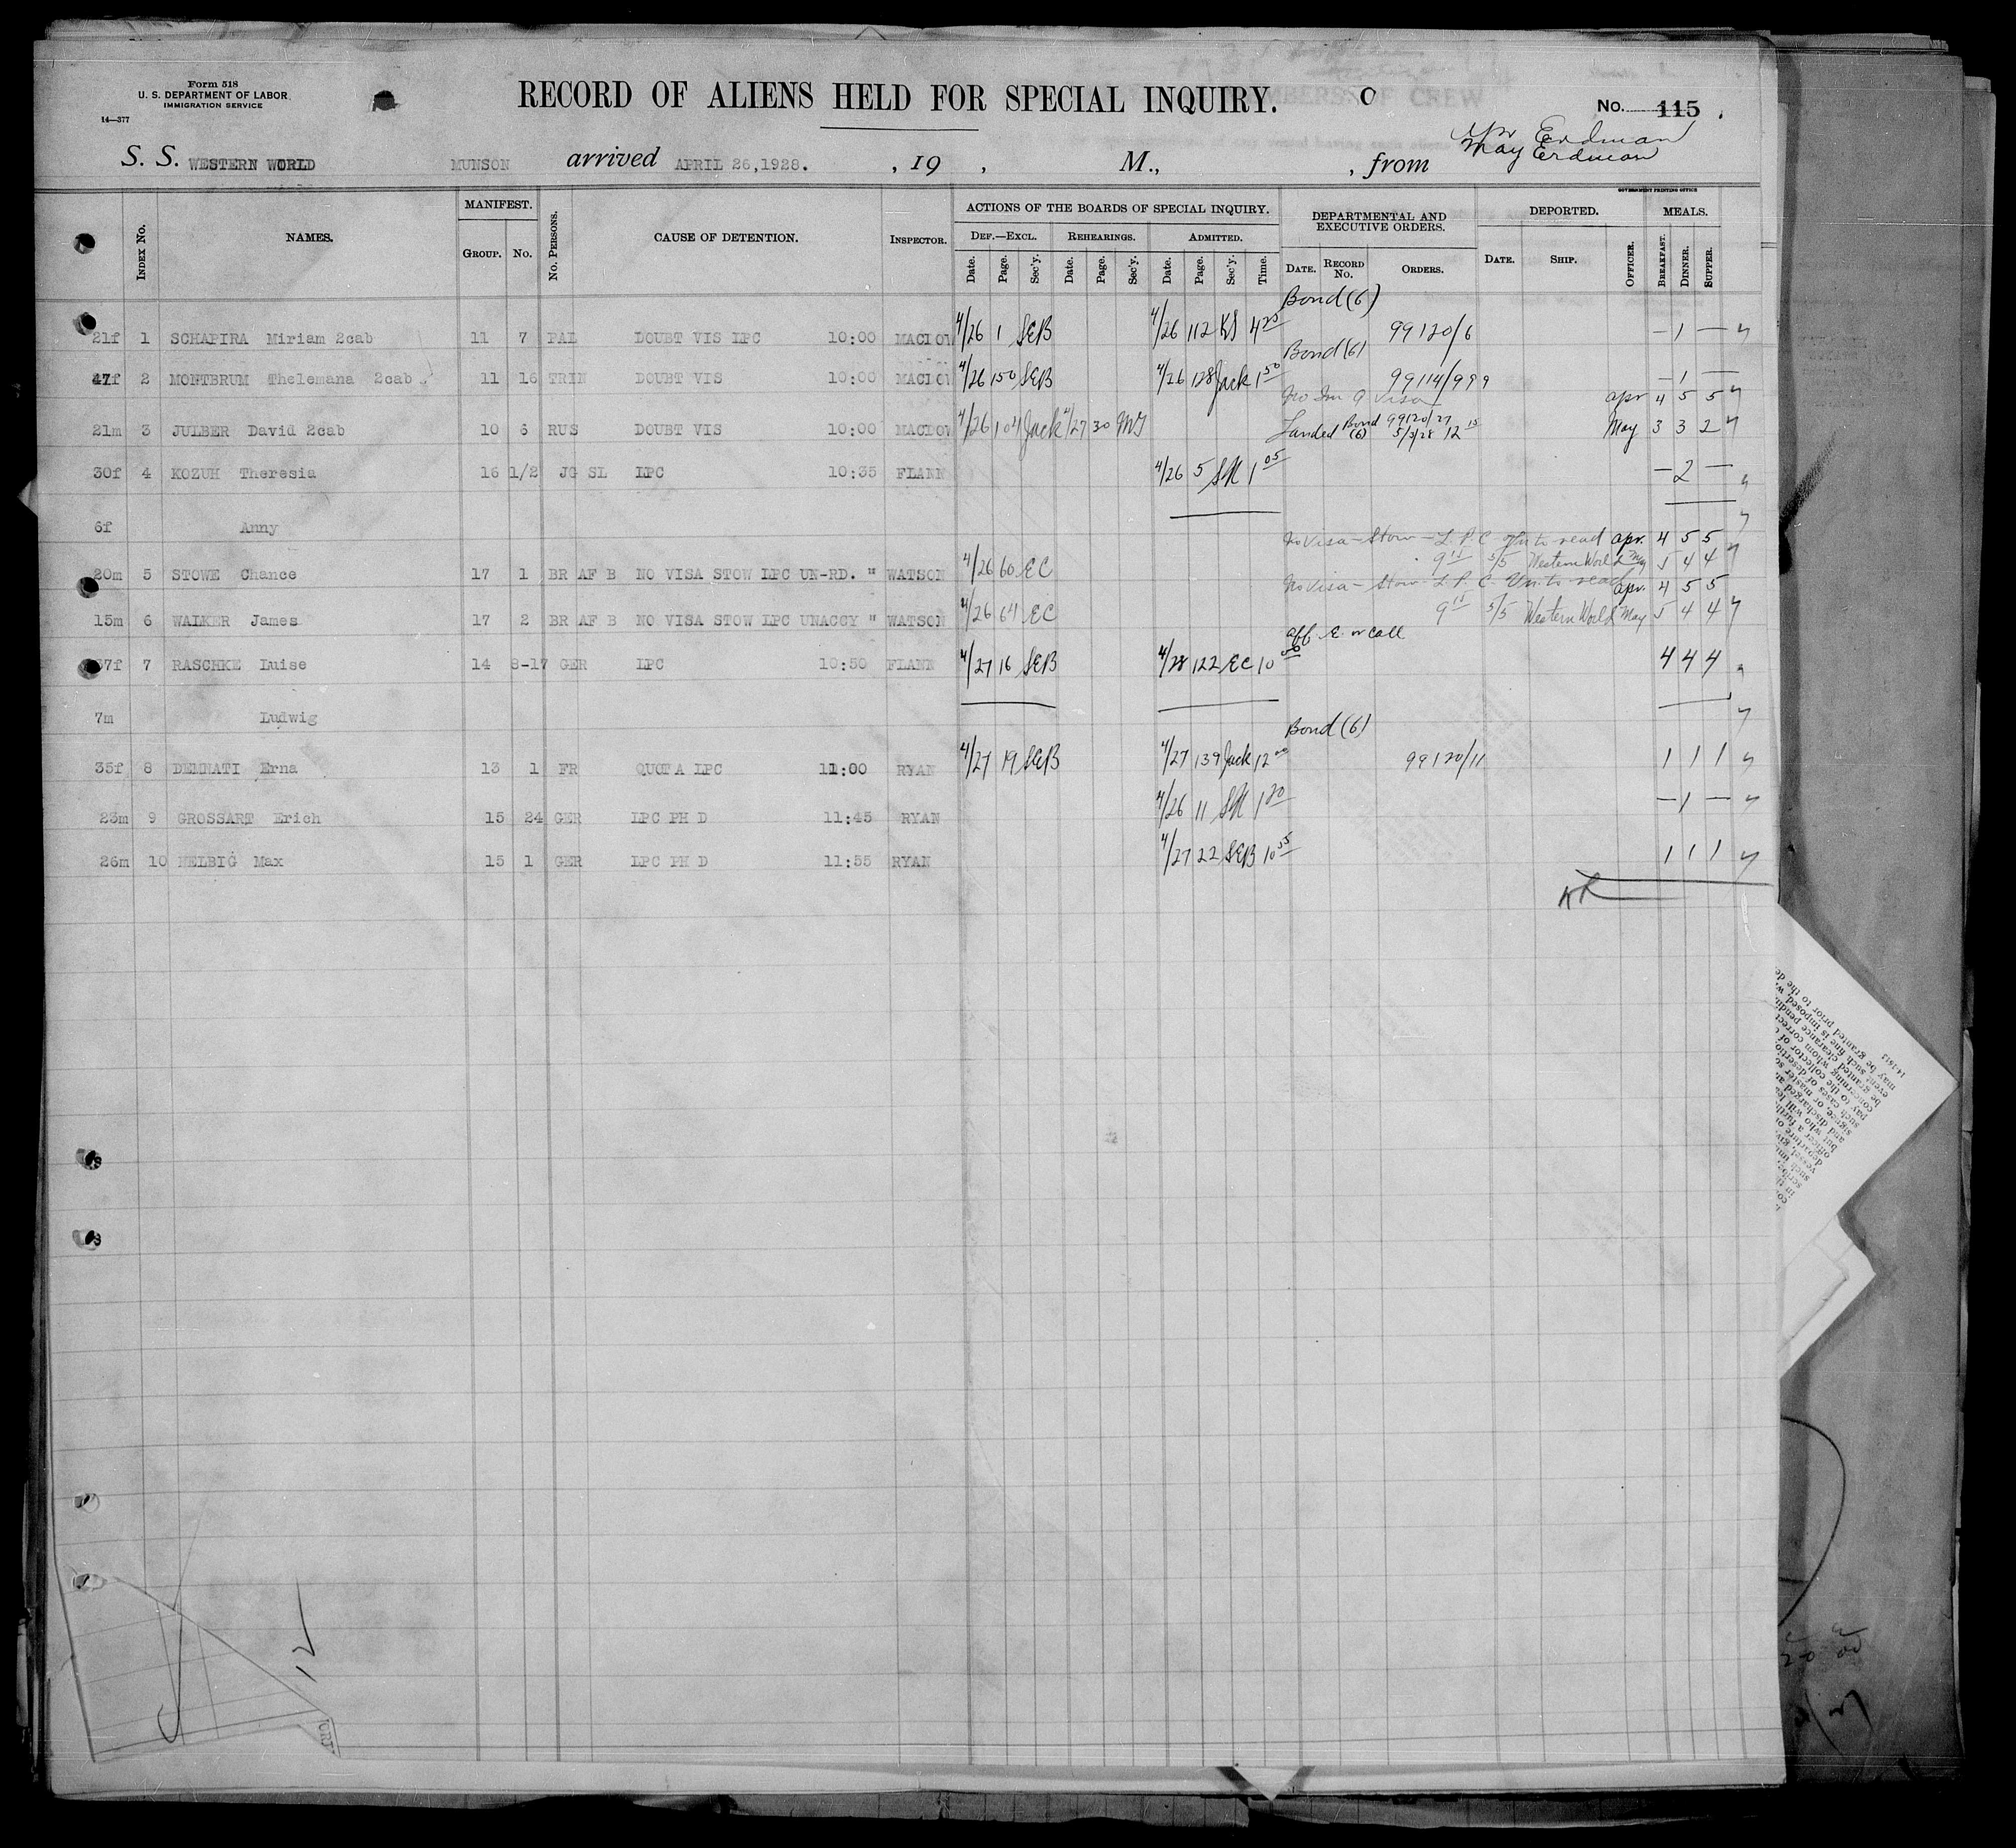 Form 518
U. S. DEPARTMENT OF LABOR
IMMIGRATION SERVICE
14—377
RECORD OF ALIENS HELD FOR SPECIAL INQUIRY.
No. 115
Erdman
May Erdman
S. S. WESTERN WORLD MUNSON arrived APRIL 26,1928. , 19 , M., , from
GOVERNMENT PRINTING OFFICE
INDEX NO. NAMES. MANIFEST. GROUP. NO. NO. PERSONS. CAUSE OF DETENTION. INSPECTOR. ACTIONS OF THE BOARDS OF SPECIAL INQUIRY. DEPARTMENTAL AND EXECUTIVE ORDERS. DEPORTED. MEALS.
DEF.—EXCL. REHEARINGS. ADMITTED.
Date. Page. Sec'y. Date. Page. Sec'y. Date. Page. Sec'y. Time. DATE. RECORD NO. ORDERS. DATE. SHIP. OFFICER. BREAKFAST. DINNER. SUPPER.
Bond (6)
21f 1 SCHAPIRA Miriam 2cab 11 7 PAL DOUBT VIS LPC 10:00 4/26 1 SEB 4/26 112 KS 4 20 99120/6 — 1 —
Bond (6)
47f 2 MONTBRUM Thelemana 2cab 11 16 TRIN DOUBT VIS 10:00 4/26 150 SEB 4/26 128 Jack 1 50 99114/999 — 1 —
No Im Q Visa Apr 4 5 5
21m 3 JULBER David 2cab 10 6 RUS DOUBT VIS 10:00 MACDOW 4/26 104 Jack 4/27 30 Landed Bond (6) 99120/27 5/3/28 12 15 May 3 3 2
30f 4 KOZUH Theresia 16 1/2 JG SL LPC 10:35 FLANN 4/26 5 1 05 — 2 —
6f Anny
No Visa — Stow — L. P. C. Un to read Apr. 4 5 5
20m 5 STOWE Chance 17 1 BR AF B NO VISA STOW LPC UN-RD. " WATSON 4/26 60 EC 9 15 5/5 Western World May 5 4 4
No Visa — Stow L. P. C. Un to read Apr. 4 5 5
15m 6 WALKER James 17 2 BR AF B NO VISA STOW LPC UNACCY " WATSON 4/26 64 EC 9 15 5/5 Western World May 5 4 4
aff. E. or call
37f 7 RASCHKE Luise 14 8-17 GER LPC 10:50 FLANN 4/27 16 SEB 4/28 122 EC 10 4 4 4
7m Ludwig
Bond (6)
35f 8 DEMNATI Erna 13 1 FR QUOTA LPC 11:00 RYAN 4/27 19 SEB 4/27 139 Jack 12 00 99120/11 1 1 1
23m 9 GROSSART Erich 15 24 GER LPC PH D 11:45 RYAN 4/26 11 1 20 — 1 —
26m 10 HELBIG Max 15 1 GER LPC PH D 11:55 RYAN 4/27 22 SEB 10 55 1 1 1
12
14-1613